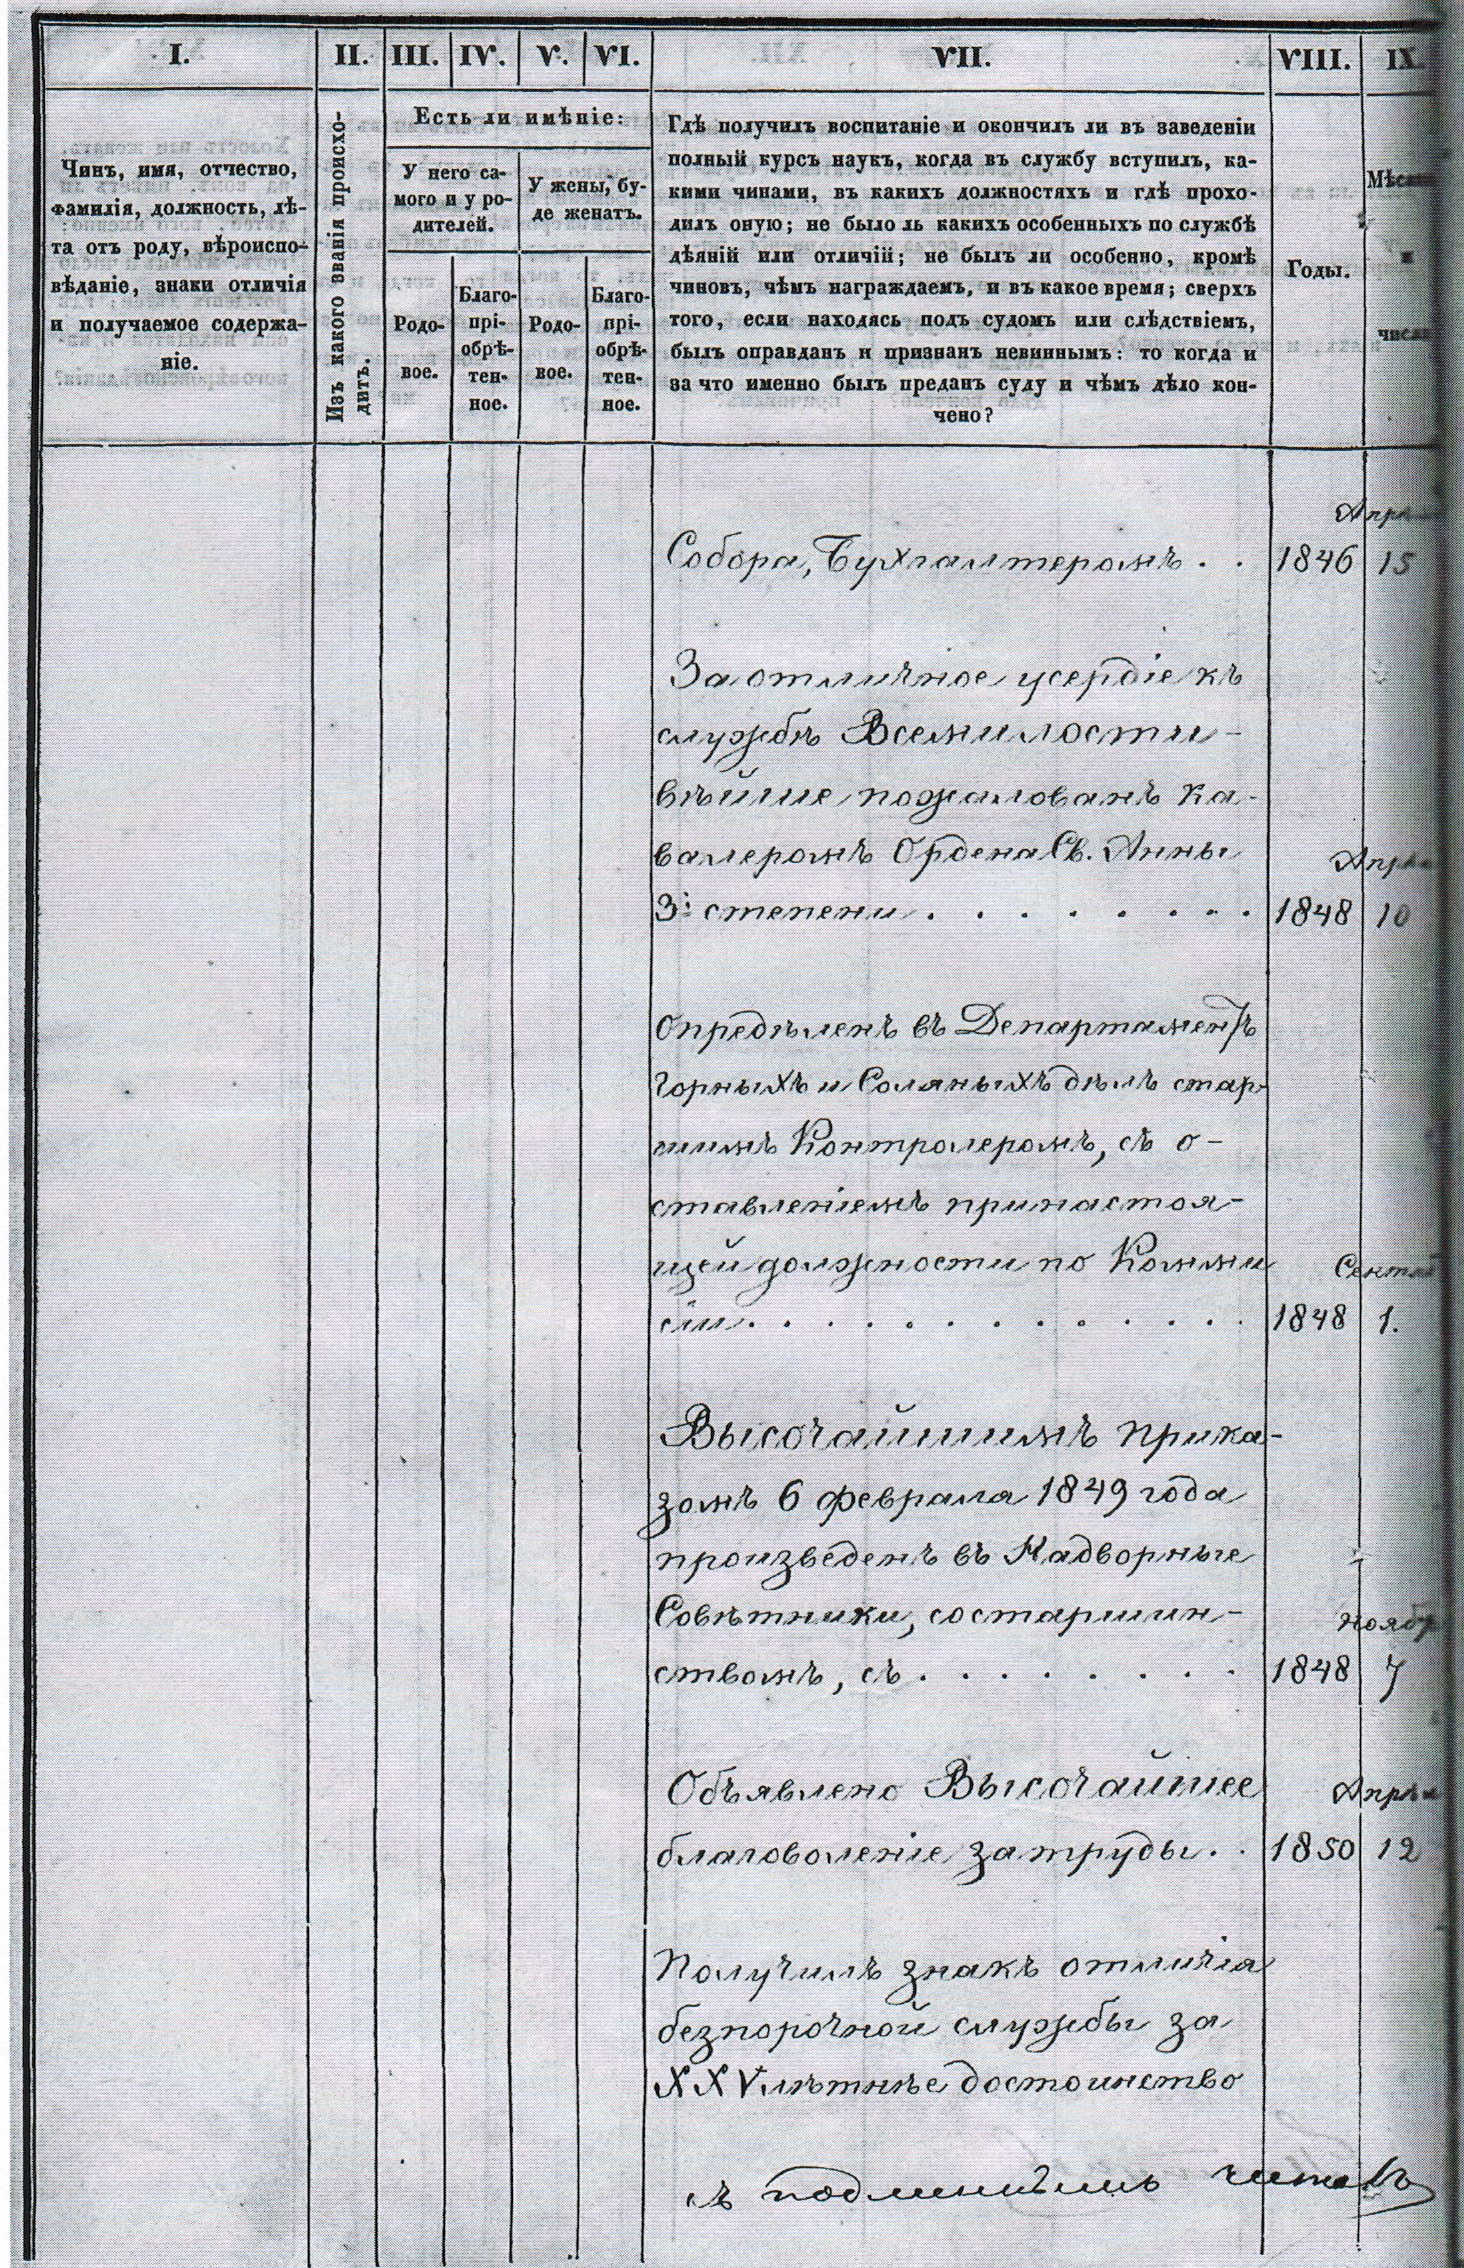 I.
II.
III.
IV.
V.
VI.
VII.
VIII.
IX.
Чинъ, имя, отчество,
фамилія, должность, лѣ-
та отъ роду, вѣроиспо-
вѣданіе, знаки отличія
и получаемое содержа-
ніе.
Изъ какого званія происхо-
дитъ.
Есть ли имѣніе:
У него са-
мого и у ро-
дителей.
У жены, бу-
де женатъ.
Родо-
вое.
Благо-
прі-
обрѣ-
тен-
ное.
Родо-
вое.
Благо-
прі-
обрѣ-
тен-
ное.
Гдѣ получилъ воспитаніе и окончилъ ли въ заведеніи
полный курсъ наукъ, когда въ службу вступилъ, ка-
кими чинами, въ какихъ должностяхъ и гдѣ прохо-
дилъ оную; не было ль какихъ особенныхъ по службѣ
дѣяній или отличій; не былъ ли особенно, кромѣ
чиновъ, чѣмъ награждаемъ, и въ какое время; сверхъ
того, если находясь подъ судомъ или слѣдствіемъ,
былъ оправданъ и признанъ невиннымъ: то когда и
за что именно былъ преданъ суду и чѣмъ дѣло кон-
чено?
Годы.
и
числа
Собора, Бухгалтеромъ . . 1846 15
За отличное усердіе къ
службѣ Всемилости-
вѣйше пожалованъ ка-
валеромъ Ордена Св. Анны
3й степени . . . . . . . . 1848 10
Опредѣленъ въ Департаментъ
Горныхъ и Соляныхъ дѣлъ стар-
шимъ Контролеромъ, съ о-
ставленіемъ при настоя-
щей должности по Комми
сіи . . . . . . . . . . . . . 1848 1.
Высочайшимъ прика-
зомъ 6 февраля 1849 года
произведенъ въ Надворные
Совѣтники, со старшин-
ствомъ, съ . . . . . . . . 1848 7
Объявлено Высочайшее
благоволеніе за труды . . 1850 12
Получилъ знакъ отличія
безпорочной службы за
XXVлѣтнѣе достоинство
съ подлиннымъ читалъ